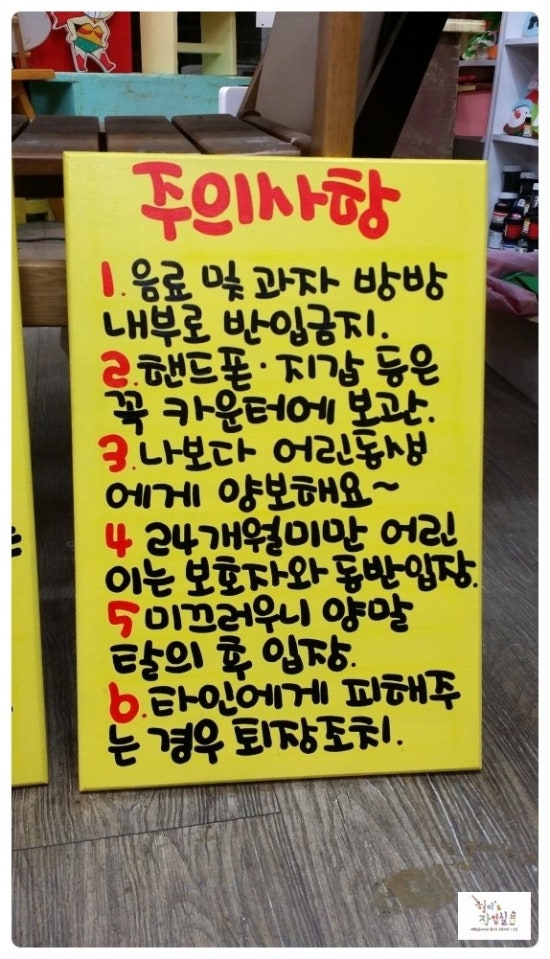 주의사항
1. 음료 및 과자 방방
내부로 반입금지.
2. 핸드폰·지갑 등은
꼭 카운터에 보관.
3. 나보다 어린동생
에게 양보해요~
4 24개월미만 어린
이는 보호자와 동반입장.
5 미끄러우니 양말
탈의 후 입장.
6. 타인에게 피해주
는 경우 퇴장조치.
작업실